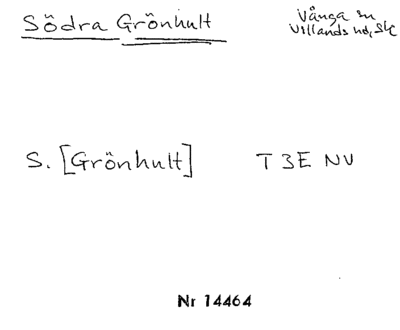 Södra Grönhult
Vånga sn
Villands hd, Sk
S. [Grönhult] T 3E NV
Nr 14464